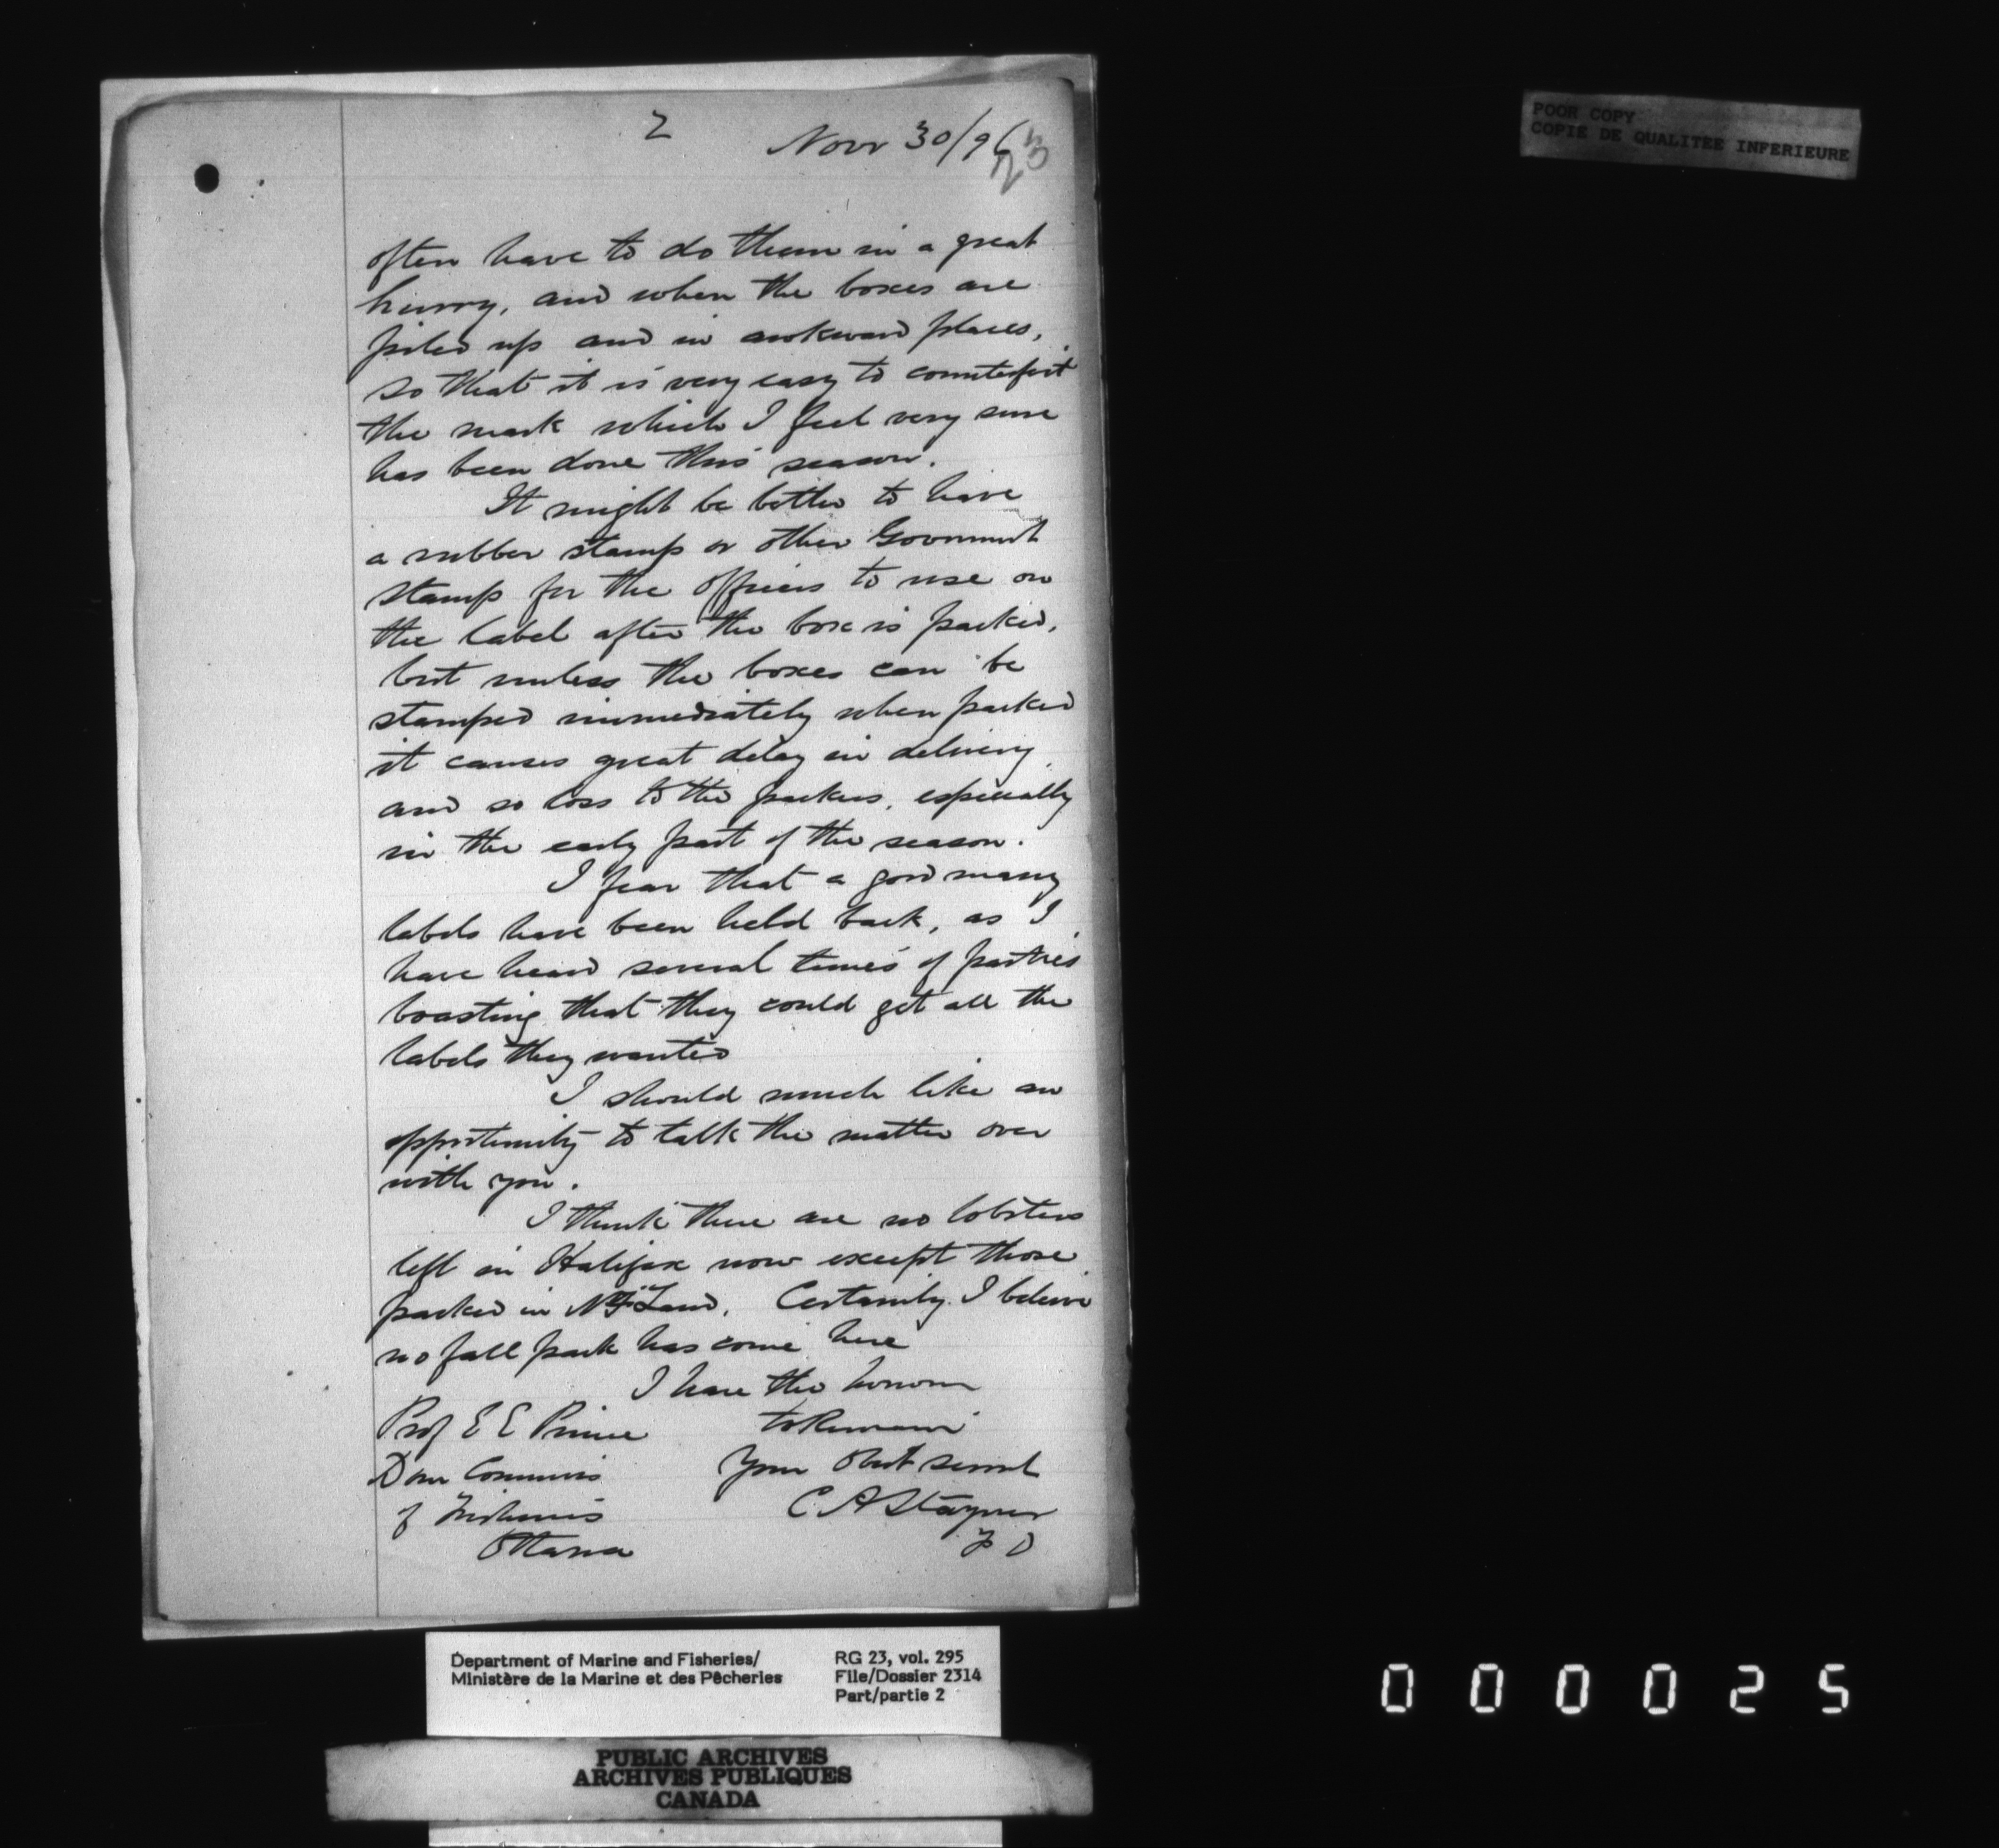 2
Novr 30/96
23
often have to do them in a great
hurry, and when the boxes are
piled up and in awkward places,
so that it is very easy to counterfeit
the mark which I feel very sure
has been done this season.
It might be better to have
a rubber stamp or other Goverment
stamp for the officers to use on
the label after the box is packed,
but unless the boxes can be
stamped immediately when packed
it causes great delay in delivery
and so loss to the packers, especially
in the early part of the season.
I fear that a good many
labels have been held back, as I
have heard several times of parties
boasting that they could get all the
labels they wanted
I should much like an
opportunity to talk the matter over
with you.
I think there are no lobsters
left in Halifax now except those
packed in NFLand. Certainly I believe
no fall pack has come here
I have the honour
Prof E E Prince to Remain
Dom Commis Your Obt servt
of Fisheries C A Stayner
Ottawa F O
POOR COPY
COPIE DE QUALITEE INFERIEURE
Department of Marine and Fisheries/ RG 23, vol. 295
Ministère de la Marine et des Pêcheries File/Dossier 2314
Part/partie 2
PUBLIC ARCHIVES
ARCHIVES PUBLIQUES
CANADA
000025